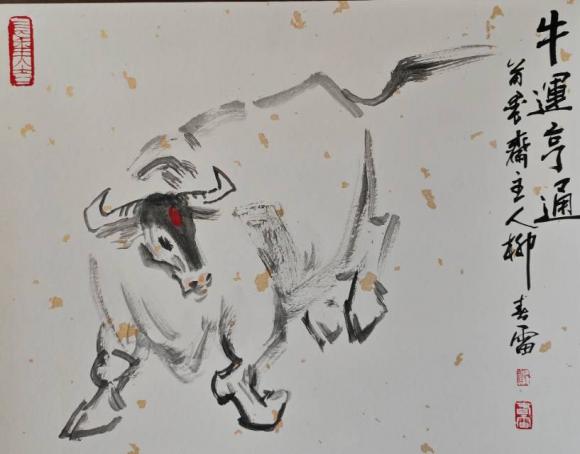 牛運亨通
齋主人柳春雷